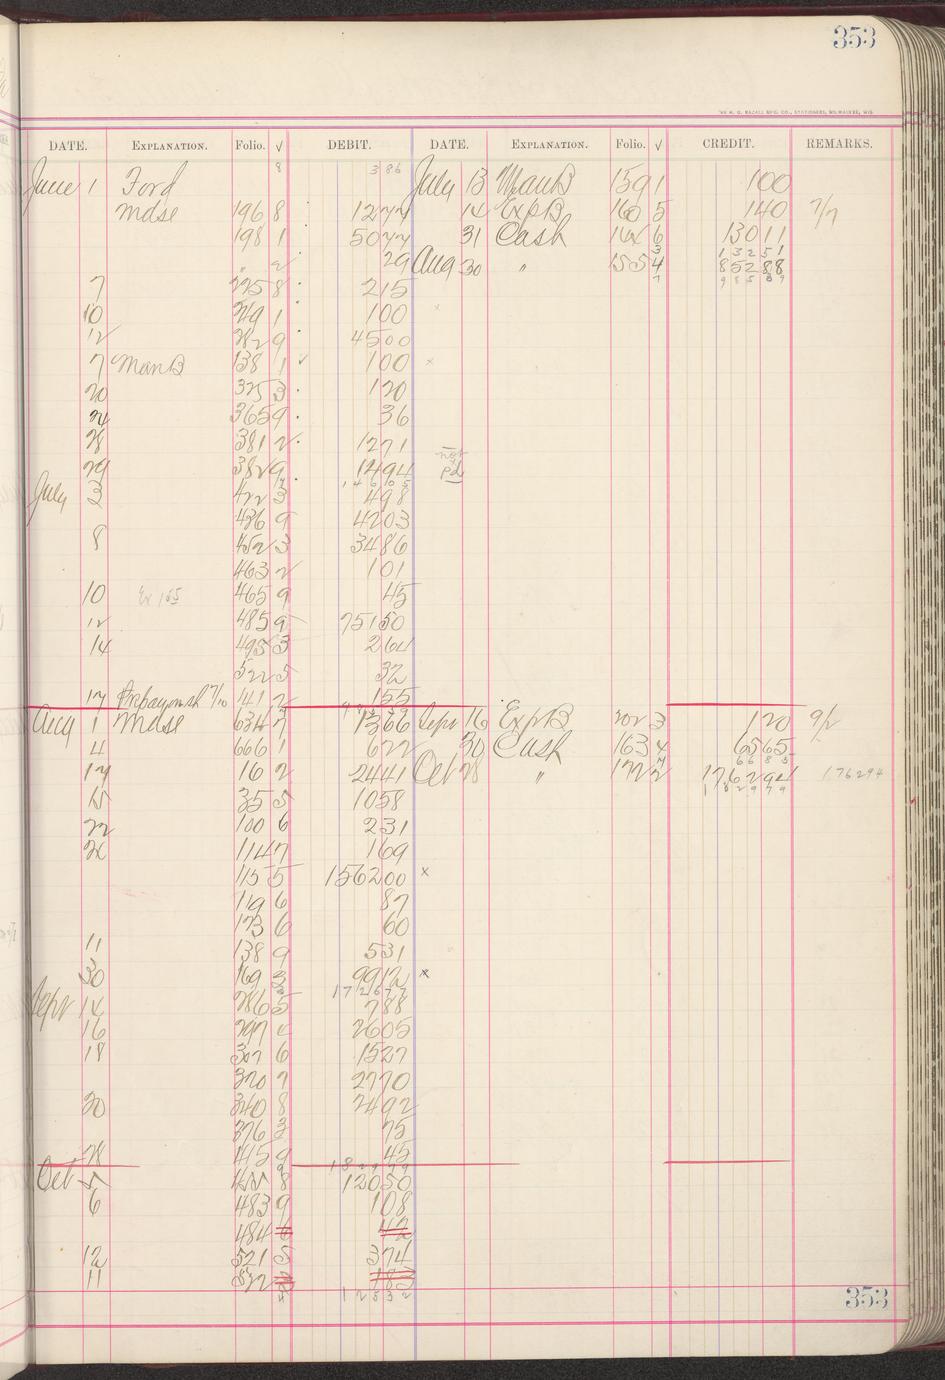 353
DATE. EXPLANATION. Folio. √ DEBIT. DATE. EXPLANATION. Folio. √ CREDIT. REMARKS.
8 386
June 1 Ford July 13 ManB 159 1 100
Mdse 196 8 1244 14 ExpB 160 5 140 7/7
198 1 5044 31 Cash 6 13011
3 13251
29 Aug 30 " 155 4 85288
7 98539
7 225 8 215
10 249 1 100
12 282 9 4500
7 ManB 138 1 √ 100 x
20 325 3 120
24 365 9 36
28 381 2 1271
not
29 382 9 1494 pd
14605
July 3 422 3 498
436 9 4203
8 452 3 3486
463 2 101
10 Ex 165 465 9 45
12 485 9 75150
14 495 3 264
522 5 32
17 Prepay on sh 7/10 141 2 155
Aug 1 Mdse 634 7 1366 Sept 16 ExpB 202 3 120 9/2
4 666 1 622 30 Cash 163 4 6565
7 6685
17 16 2 2441 Oct 28 " 172 2 176294 176294
182979
15 35 5 1058
22 100 6 231
26 114 7 169
115 5 156200 x
119 6 87
173 6 60
11 138 9 531
30 169 3 9912 x
17267
Sept 14 286 5 788
16 297 2605
18 307 6 1527
320 7 2770
20 340 8 2492
376 3 75
28 415 9 45
182979
Oct 5 455 8 12050
6 483 9 108
484 6 42
12 521 5 374
11 522 3 183
12532
353